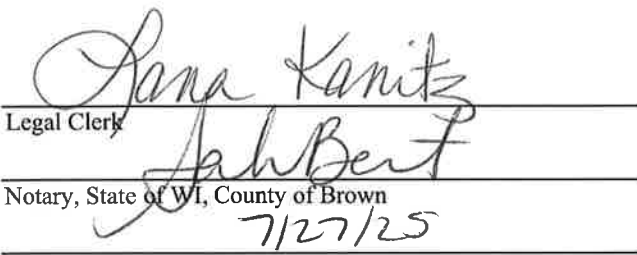 Lana Kanitz
Legal Clerk
Bert
Notary, State of WI, County of Brown
7/27/25